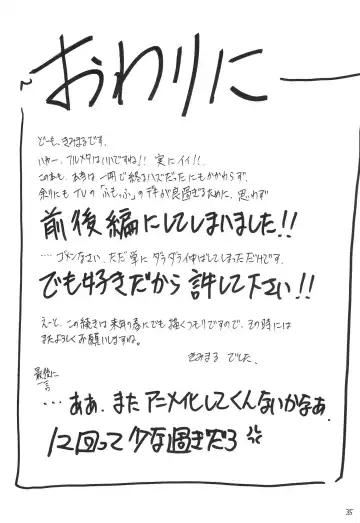 おわりに
どーも、きみまるです。
いやー、フルメタはいいですね!! 実にイイ!!
この本も、本当は一冊で終るハズだったにもかかわらず、
余りにもTVの「ふもっふ」のデキが良過ぎるために、思わず
前後編にしてしまいました!!
…ゴメンなさい、ただ単にダラダラ伸ばしてしまっただけです。
でも好きだから許して下さい!!
えーと、この続きは来年の春にでも描くつもりですので、その時には
またよろしくお願いしますね。
きみまるでした。
最後に
一言
…ああ、またアニメ化してくんないかなぁ。
12回って少な過ぎだろ
35